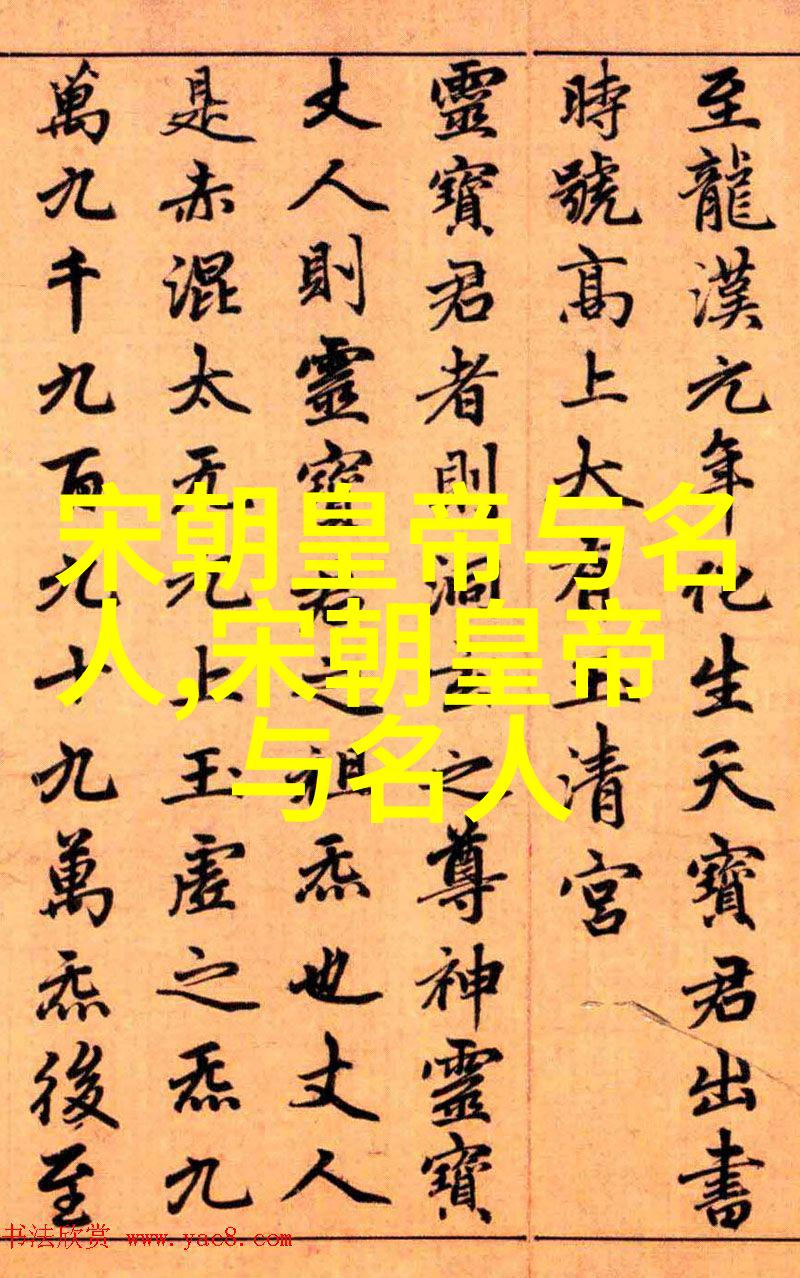 至龍漢元年化生天寶君出書
時號髙上大有玉清宮
靈寶君者則洞玄之尊神靈寶
丈人則靈寶君之祖炁也丈人
是赤混太无元上玉虛之炁九
萬九千九百九十九萬炁後至
宋朝皇帝与名
人,宋朝皇帝
与名人
书法欣赏 www.yac8.com